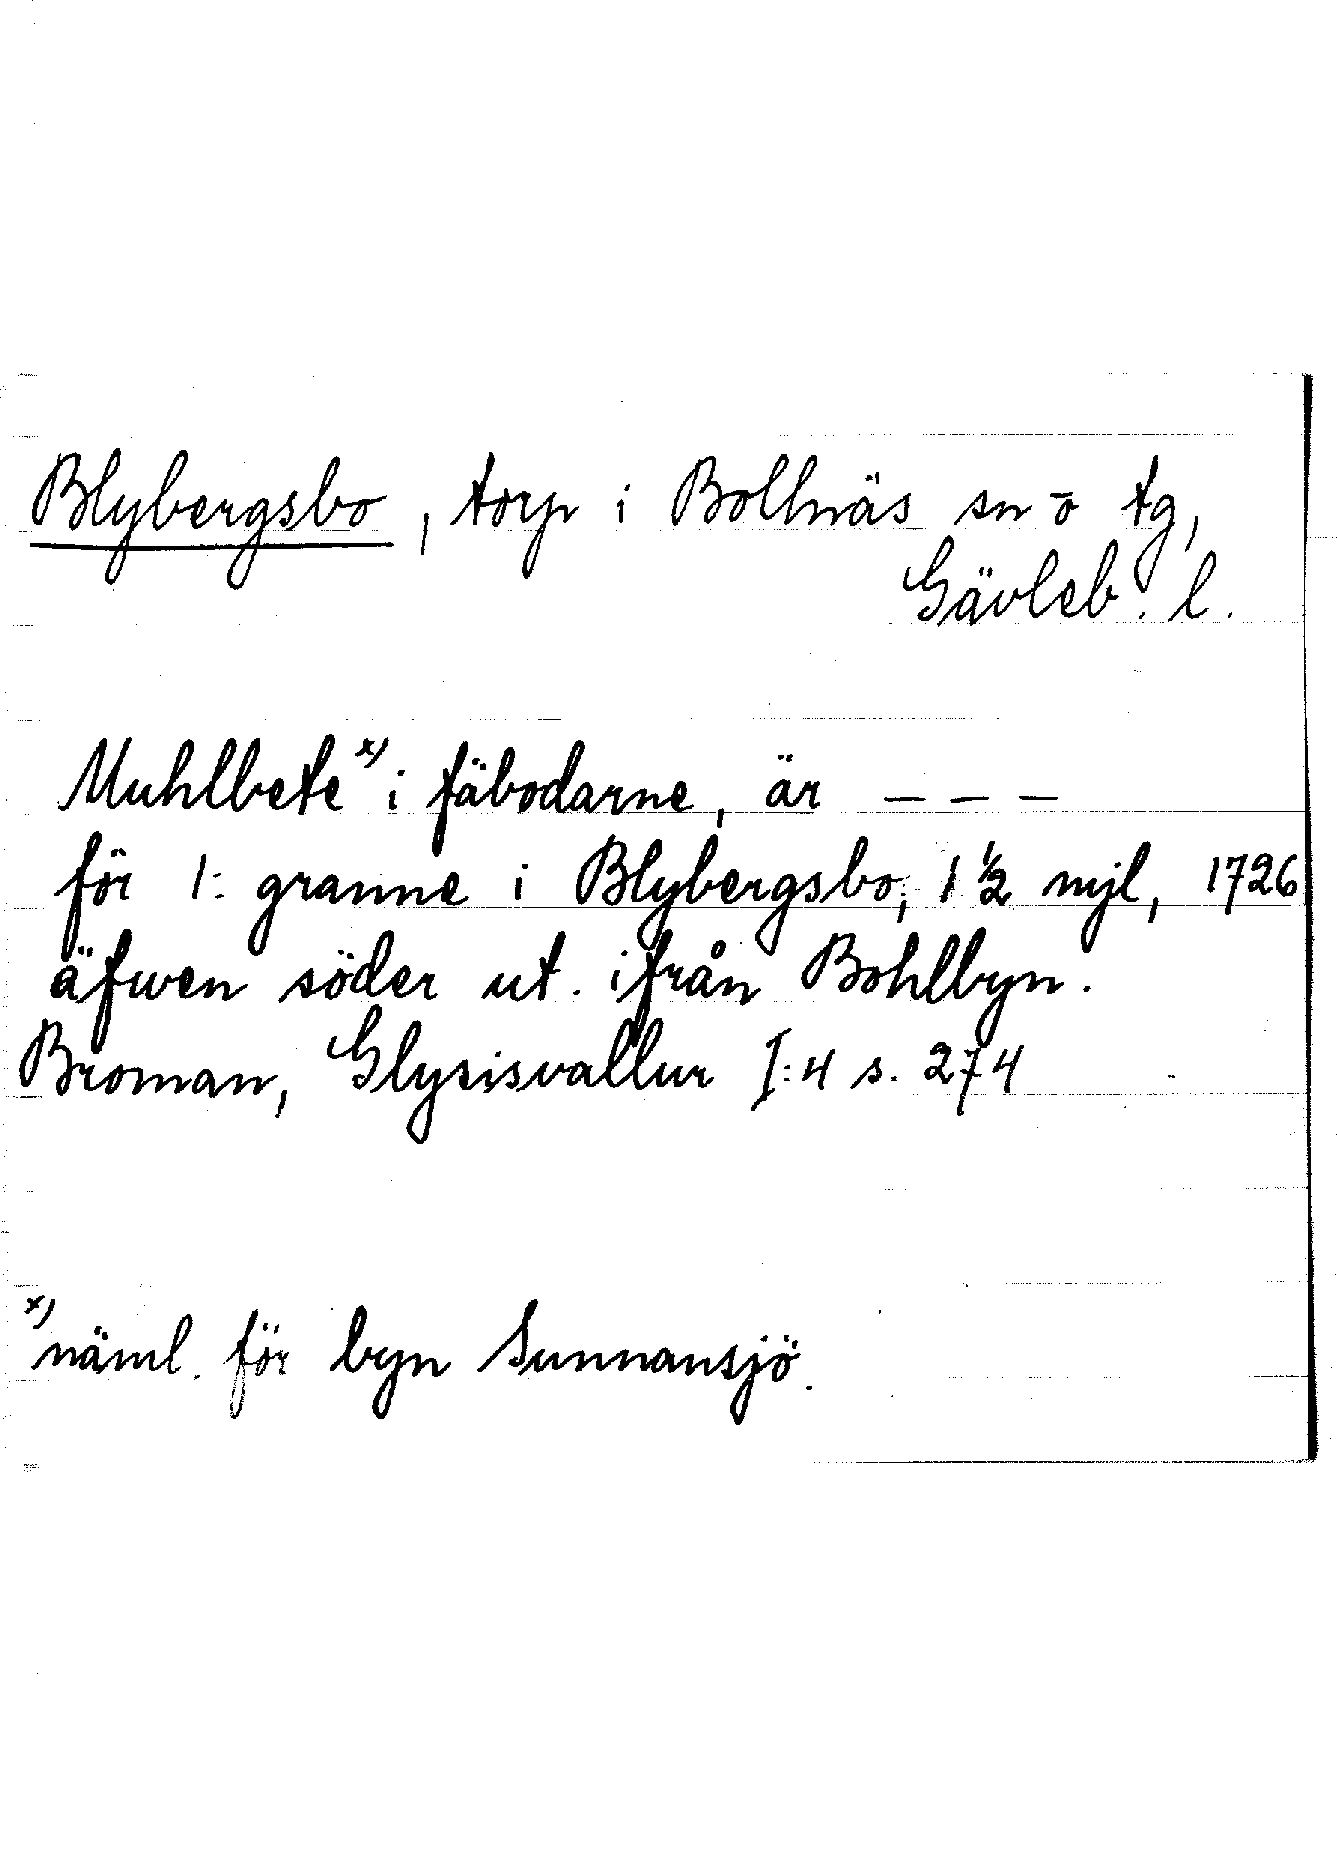 Blybergsbo, torp i Bollnäs sn o tg,
Gävleb. l.
Muhlbete x) i fäbodarne, är — — —
för 1: granne i Blybergsbo, 1 ½ mjl, 1726
äfwen söder ut. ifrån Bohlbyn.
Broman, Glysisvallur I:4 s. 274
x) näml. för byn Sunnansjö.